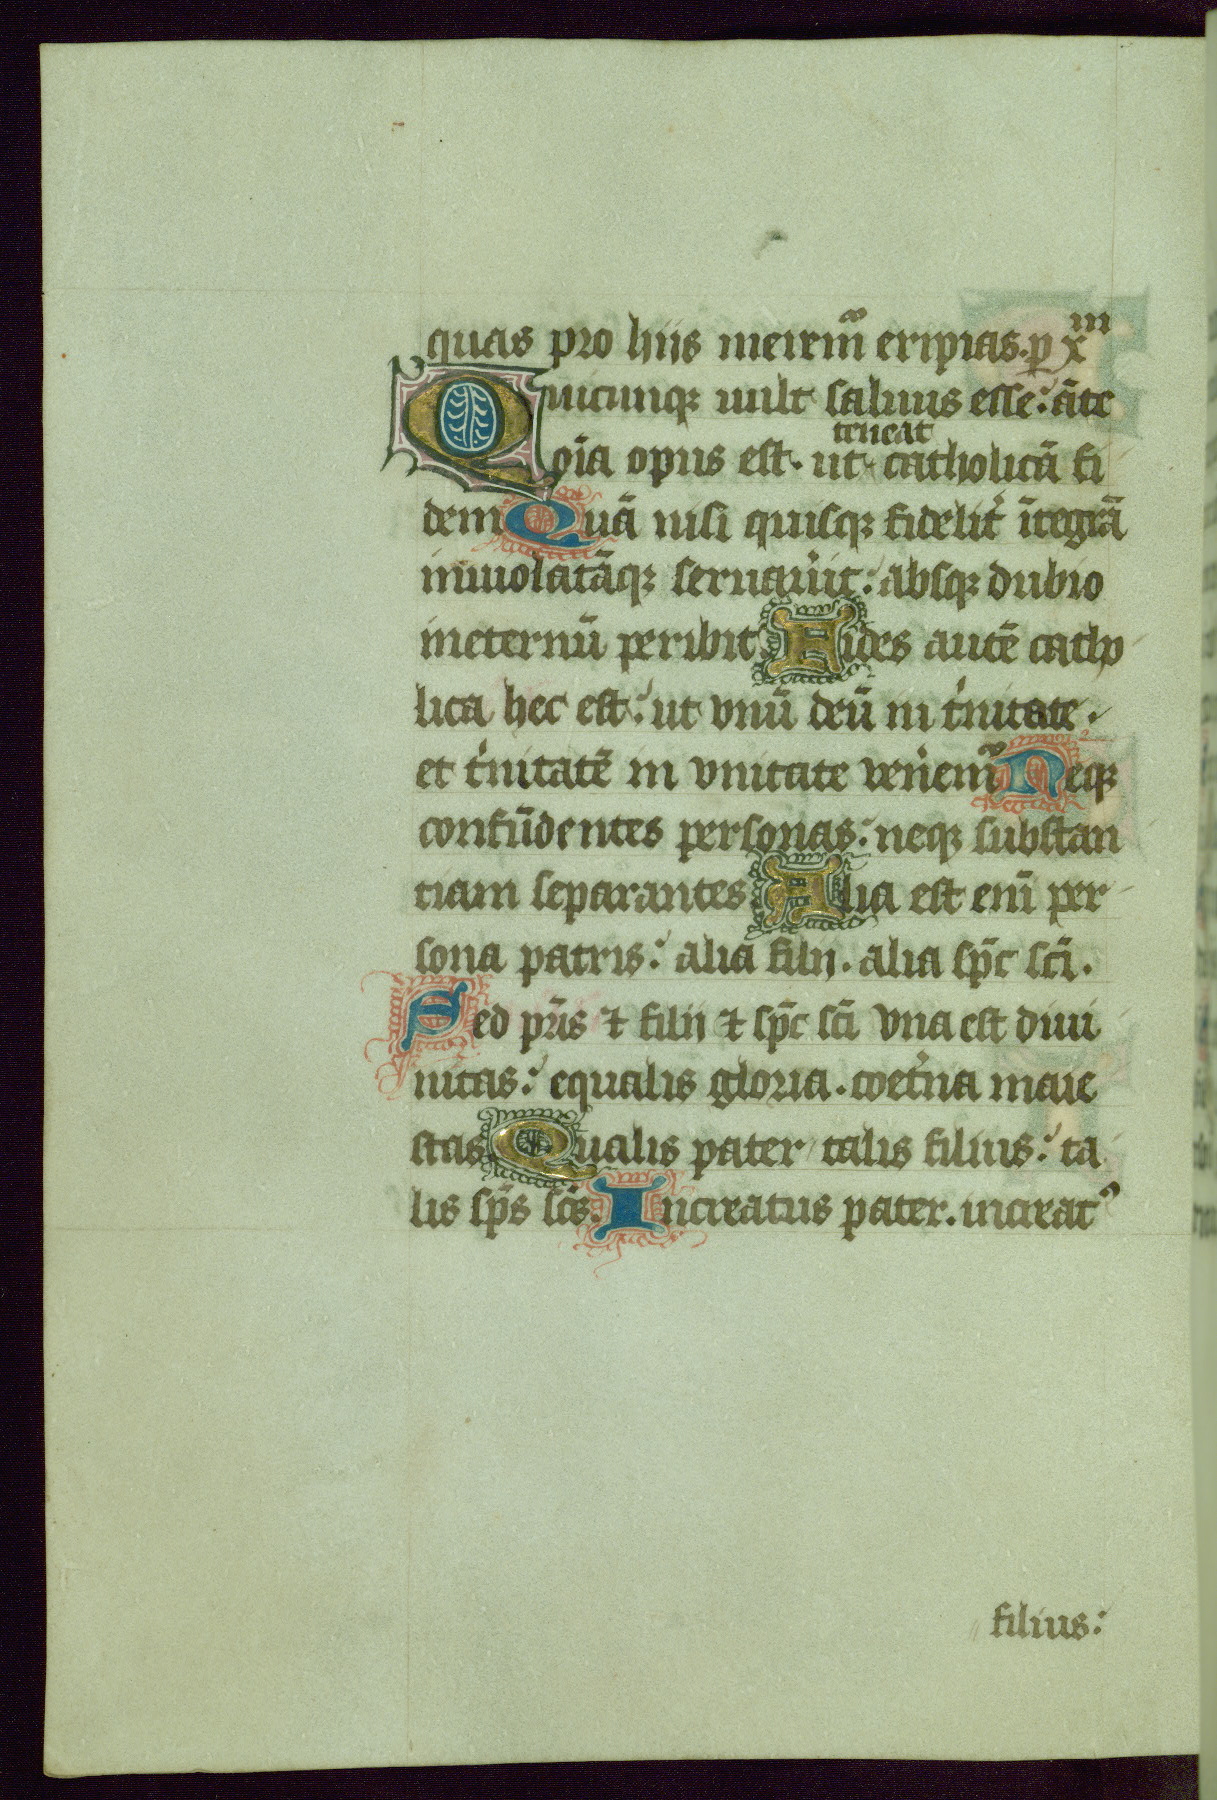 quas pro hijs meremᷣ eripias. ꝑ xᵐ
Quicunqꝫ uult saluus esse: an̄te
teneat
oīa opus est. ut catholicā fi
dem Quā nisi quisqꝫ fidelit᷑ ītegrā
inuiolatāqꝫ seruau᷑it: absqꝫ dubio
ineternū peribit Fides autē catho
lica hec est: ut vnū deū in t᷑nitate.
et t᷑nitatē in vnitate uen᷑emꝰ Neqꝫ
confūdentes personas: neqꝫ substan
tiam separantes Alia est enī per
sona patris: alia filij. alia sp̄c sc̄i.
Sed pr̄is ⁊ filij ⁊ sp̄c sc̄i vna est diui
nitas: equalis gloria. coet᷑na maie
stas Qualis pater talis filius: ta
lis sp̄s sc̄s. Increatus pater. increatꝰ
filius: